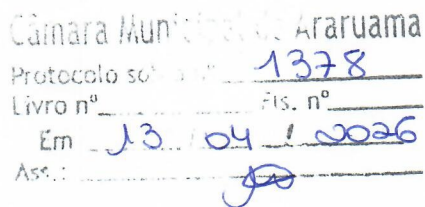 Câmara Municipal de Araruama
Protocolo sob nº 1378
Livro nº Fls. nº
Em 13 / 04 / 2026
Ass.: